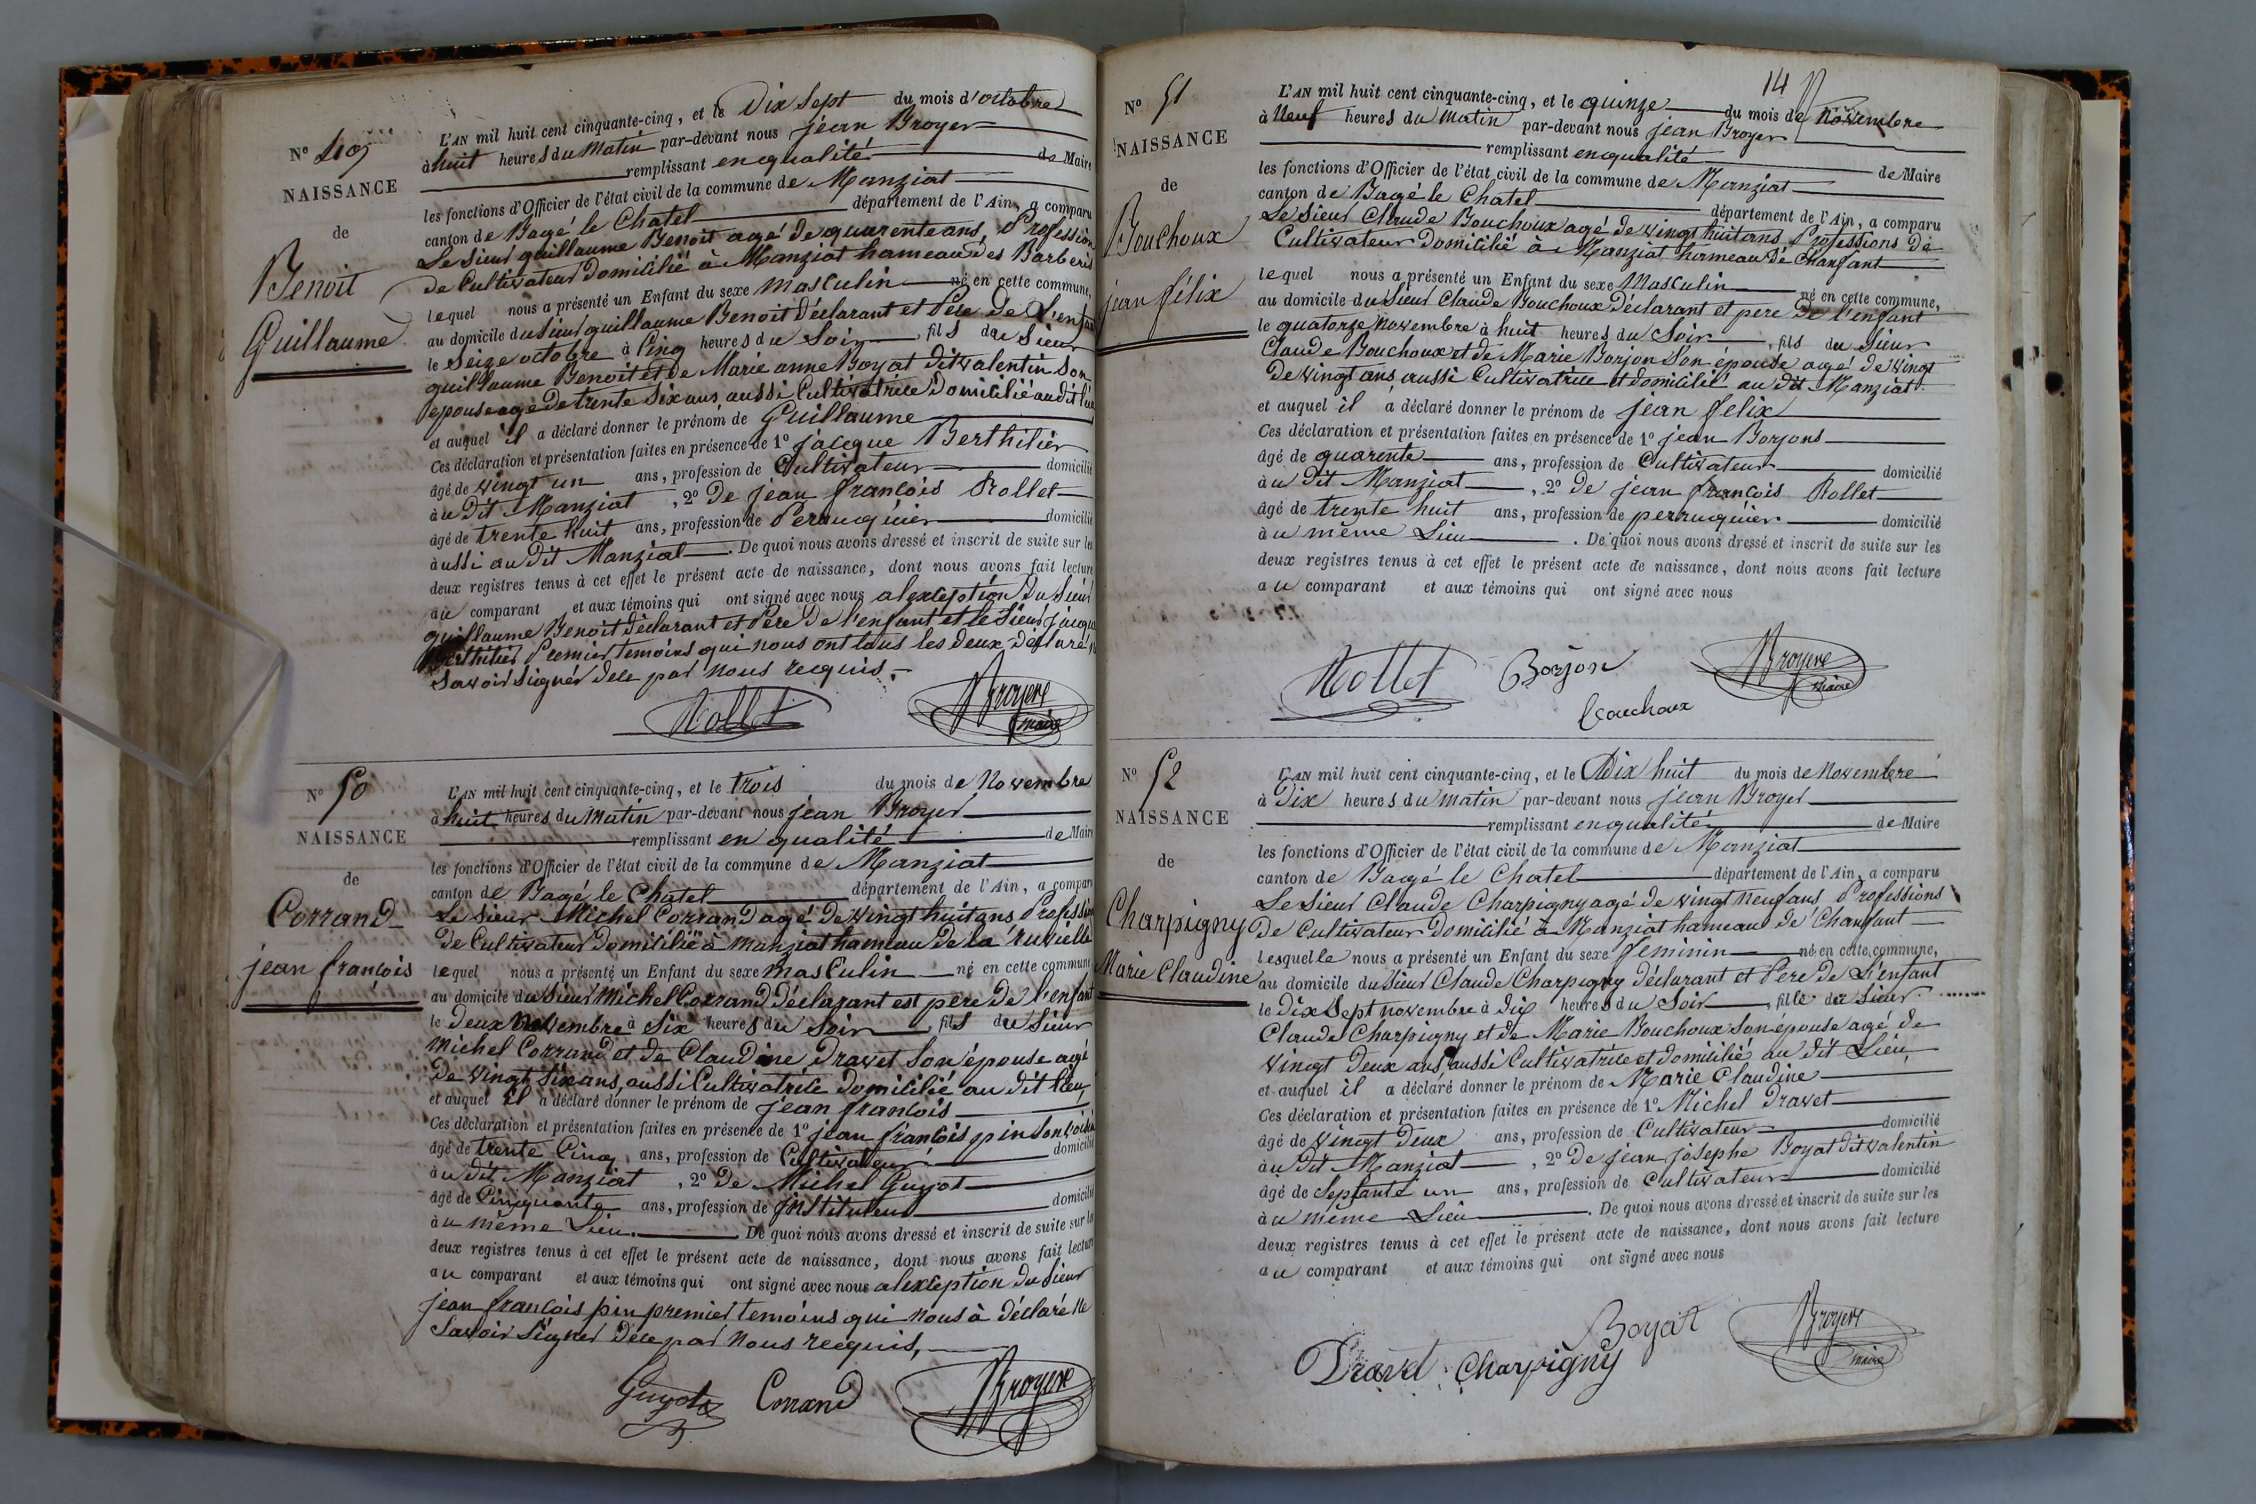 N° 49
NAISSANCE
de
Benoit
Guillaume
L'AN mil huit cent cinquante-cinq, et le Dix Sept du mois d'octobre
à huit heures du Matin par-devant nous jean Broyer
remplissant en qualité de Maire
les fonctions d'Officier de l'état civil de la commune de Manziat
canton de Bagé le Chatel département de l'Ain, a comparu
Le Sieur guillaume Benoit agé de quarente ans, Profession
de Cultivateur Domicilié à Manziat hameau des Barberis
lequel nous a présenté un Enfant du sexe Masculin né en cette commune,
au domicile du Sieur guillaume Benoit Déclarant et Pere De L'enfant
le Seize octobre à Cinq heures du Soir, fils du Sieur
guillaume Benoit et de Marie anne Boyat dit valentin Son
epouse agé de trente Six ans, aussi Cultivatrice Domicilié au dit lieu
et auquel il a déclaré donner le prénom de Guillaume
Ces déclaration et présentation faites en présence de 1° jacque Berthilier
âgé de vingt un ans, profession de Cultivateur domicilié
à u Dit Manziat, 2° De jean francois Rollet
âgé de trente huit ans, profession de Peruquier domicilié
à ussi au Dit Manziat. De quoi nous avons dressé et inscrit de suite sur les
deux registres tenus à cet effet le présent acte de naissance, dont nous avons fait lecture
au comparant et aux témoins qui ont signé avec nous a lexception Du Sieur
guillaume Benoit Déclarant et Pere De l'enfant et le Sieur jacque
Berthilier Premier temoins qui nous ont tous les deux déclaré n
Savoir Signer Dece par nous requis.
Rollet Broyere maire
N° 50
NAISSANCE
de
Corrand
jean françois
L'AN mil huit cent cinquante-cinq, et le trois du mois de Novembre
à huit heures du Matin par-devant nous jean Broyer
remplissant en qualité de Maire
les fonctions d'Officier de l'état civil de la commune de Manziat
canton de Bagé le Chatel département de l'Ain, a comparu
Le Sieur Michel Corrand agé de vingt huit ans Profession
De Cultivateur Domicilié à manziat hameau De la ruvielle
lequel nous a présenté un Enfant du sexe masculin né en cette commune
au domicile du Sieur Michel Corrand Déclarant est pere De l'enfant
le Deux Novembre à Six heures du Soir, fils du Sieur
Michel Corrand et de Claudine Dravet Son épouse agé
De vingt Six ans, aussi Cultivatrice domicilié au dit lieu,
et auquel il a déclaré donner le prénom de jean francois
Ces déclaration et présentation faites en présence de 1° jean francois pin Son voisin
âgé de trente Cinq ans, profession de Cultivateur domicilié
à u dit Manziat, 2° De Michel Guyot
âgé de Cinquante ans, profession de jnstituteur domicilié
à u même Lieu. De quoi nous avons dressé et inscrit de suite sur les
deux registres tenus à cet effet le présent acte de naissance, dont nous avons fait lecture
au comparant et aux témoins qui ont signé avec nous a lexception du Sieur
jean francois pin premier temoins qui nous à déclaré ne
Savoir Signer Dece par Nous requis,
Guyot Corrand Broyere
14
N° 51
NAISSANCE
de
Bouchoux
jean félix
L'AN mil huit cent cinquante-cinq, et le quinze du mois de Novembre
à Neuf heures du Matin par-devant nous jean Broyer
remplissant en qualité de Maire
les fonctions d'Officier de l'état civil de la commune de Manziat
canton de Bagé le Chatel département de l'Ain, a comparu
Le Sieur Claude Bouchoux agé de vingt huit ans Professions De
Cultivateur Domicilié à Manziat hameau de Chanfant
lequel nous a présenté un Enfant du sexe Masculin né en cette commune,
au domicile du Sieur Claude Bouchoux déclarant et pere De l'enfant
le quatorze Novembre à huit heures du Soir, fils du Sieur
Claude Bouchoux et de Marie Borjon Son épouse agé de vingt
De vingt ans, aussi Cultivatrice et domicilié au dit Manziat
et auquel il a déclaré donner le prénom de jean felix
Ces déclaration et présentation faites en présence de 1° jean Borjons
âgé de quarente ans, profession de Cultivateur domicilié
à u Dit Manziat, 2° De jean francois Rollet
âgé de trente huit ans, profession de perruquier domicilié
à u même Lieu. De quoi nous avons dressé et inscrit de suite sur les
deux registres tenus à cet effet le présent acte de naissance, dont nous avons fait lecture
au comparant et aux témoins qui ont signé avec nous
Rollet Borjon Broyere maire
Bouchoux
N° 52
NAISSANCE
de
Charpigny
Marie Claudine
L'AN mil huit cent cinquante-cinq, et le Dix huit du mois de Novembre
à Dix heures du matin par-devant nous jean Broyer
remplissant en qualité de Maire
les fonctions d'Officier de l'état civil de la commune de Manziat
canton de Bagé le Chatel département de l'Ain, a comparu
Le Sieur Claude Charpigny agé de vingt Neuf ans Professions
De Cultivateur Domicilié à Manziat hameau de Chanfant
lesquelle nous a présenté un Enfant du sexe feminin né en cette commune,
au domicile du Sieur Claude Charpigny déclarant et Pere De L'enfant
le Dix Sept novembre à Dix heures du Soir, fille du Sieur
Claude Charpigny et de Marie Bouchoux Son épouse agé de
vingt Deux ans, aussi Cultivatrice et domicilié au dit Lieu,
et auquel il a déclaré donner le prénom de Marie Claudine
Ces déclaration et présentation faites en présence de 1° Michel Dravet
âgé de vingt Deux ans, profession de Cultivateur domicilié
à u Dit Manziat, 2° De jean joSephe Boyat dit valentin
âgé de Septante un ans, profession de Cultivateur domicilié
à u même Lieu. De quoi nous avons dressé et inscrit de suite sur les
deux registres tenus à cet effet le présent acte de naissance, dont nous avons fait lecture
au comparant et aux témoins qui ont signé avec nous
Boyat Broyere maire
Dravet Charpigny